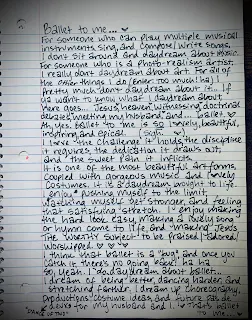 Ballet to me...♡
For someone who can play multiple musical
instruments, sing, and compose/write songs,
I don't sit around and daydream about music.
For someone who is a photo-realism artist,
I really don't daydream about art. For all of
the other things I do (enter too much! ha) I
pretty much don't daydream about it... If
ya wann't to know what I daydream about,
here goes... Jesus, heaven, witnessing, doctrinal
debates, meeting my husband and... ballet ♡
Ah, yes. Ballet to me is so lovely, beautiful,
inspiring and epical. (Sigh...)
I love the challenge it holds, the discipline
it requires, the dedication it draws out,
and the sweet pain it inflicts.
It is one of the most beautiful art forms,
coupled with gorgeous music and lovely
costumes, it is a daydream brought to life.
I enjoy pushing myself to the limit,
watching myself get stronger, and feeling
that satisfying stretch. I enjoy making
the hard look easy, making a lovely song
or hymn come to life, and making Jesus
The Worthy Subject to be praised, adored,
worshipped. ♡ ♡
I think that ballet is a "bug" and once you
catch it, there's no going back! ha ha
So, yeah. I do daydream about ballet...
I dream of being better, dancing harder and
stretching farther. I dream up choreography,
productions, costume ideas, and future
for my husband and I ♡ that's ballet
to me...